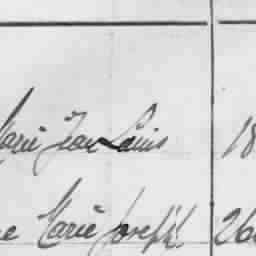 Marie Jean Louis 18
e Marie Joseph 26